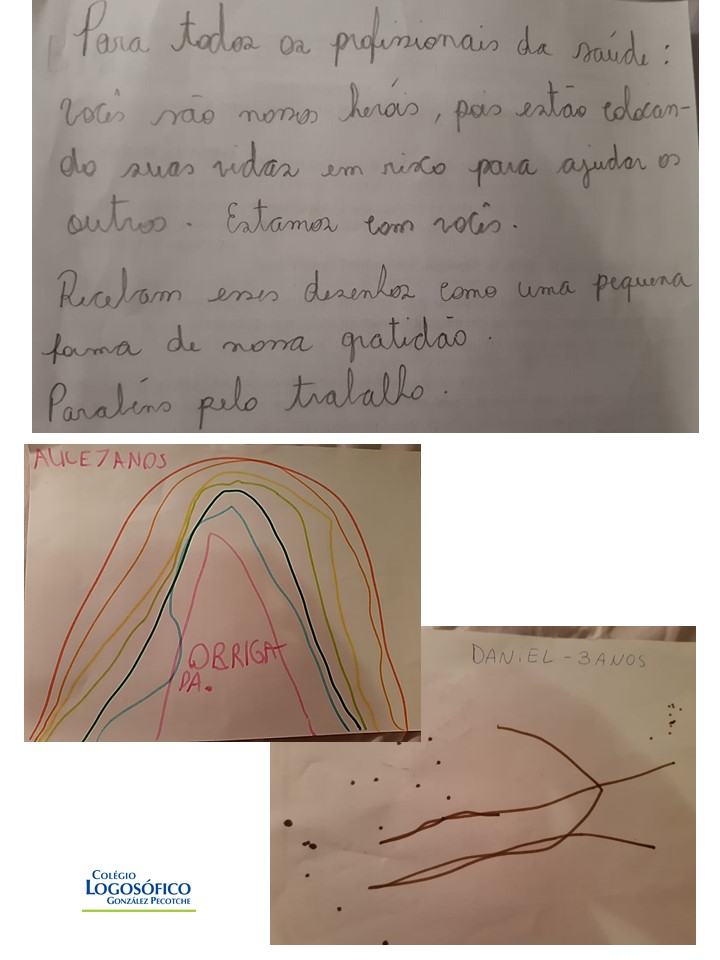 Para todos os profissionais da saúde:
vocês são nossos heróis, pois estão colocan-
do suas vidas em risco para ajudar os
outros. Estamos com vocês.
Recebam esses desenhos como uma pequena
forma de nossa gratidão.
Parabéns pelo trabalho.
ALICE 7 ANOS
OBRIGA
DA.
DANIEL - 3 ANOS
COLÉGIO
LOGOSÓFICO
GONZÁLEZ PECOTCHE